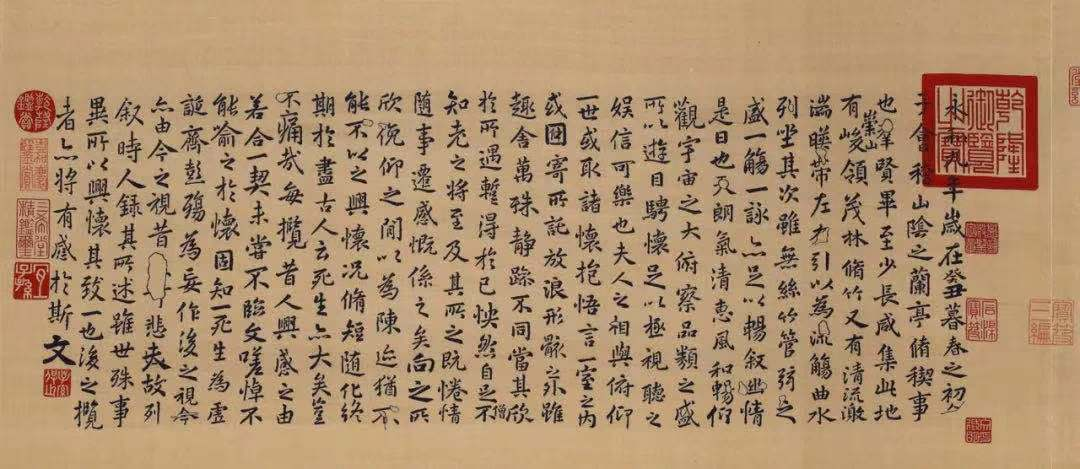 永和九年歲在癸丑暮春之初會
于會稽山陰之蘭亭脩稧事
也羣賢畢至少長咸集此地
有崇山峻領茂林脩竹又有清流激
湍暎帶左右引以為流觴曲水
列坐其次雖無絲竹管弦之
盛一觴一詠亦足以暢叙幽情
是日也天朗氣清惠風和暢仰
觀宇宙之大俯察品類之盛
所以遊目騁懷足以極視聽之
娛信可樂也夫人之相與俯仰
一世或取諸懷抱悟言一室之內
或因寄所託放浪形骸之外雖
趣舍萬殊静躁不同當其欣
於所遇蹔得於己怏然自足不
僧
知老之將至及其所之既惓情
隨事遷感慨係之矣向之所
欣俛仰之間以為陳迹猶不
能不以之興懷况脩短隨化終
期於盡古人云死生亦大矣豈
不痛哉每攬昔人興感之由
若合一契未嘗不臨文嗟悼不
能喻之於懷固知一死生為虛
誕齊彭殤為妄作後之視今
亦由今之視昔悲夫故列
叙時人錄其所述雖世殊事
異所以興懷其致一也後之攬
者亦將有感於斯文
乾隆鑑賞
嘉慶鑑賞
三希堂精鑑璽
宜子孫